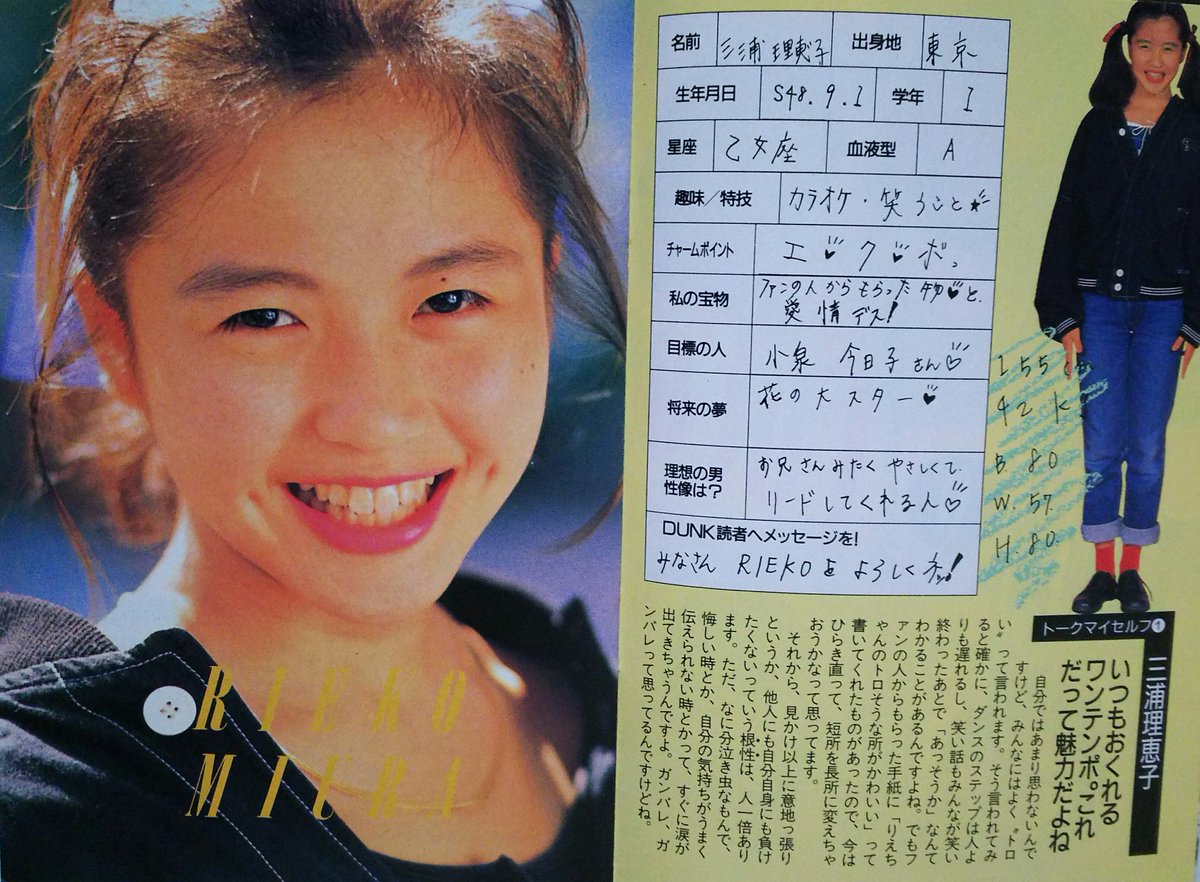 RIEKO
MIURA
名前 三浦理恵子 出身地 東京
生年月日 S48.9.1 学年 1
星座 乙女座 血液型 A
趣味／特技 カラオケ・笑うこと★
チャームポイント エ♥ク♥ボ。
私の宝物 ファンの人からもらった物♥と、
愛情デス!
目標の人 小泉 今日子さん♡
将来の夢 花の大スター♥
理想の男
性像は? お兄さんみたくやさしくて、
リードしてくれる人♡
DUNK読者へメッセージを!
みなさん RIEKOをよろしくネッ!
155cm
42kg
B.80
W.57
H.80
トークマイセルフ❶
三浦理恵子
いつもおくれる
ワンテンポ。これ
だって魅力だよね
自分ではあまり思わないんで
すけど、みんなにはよく〝トロ
い〟って言われます。そう言われてみ
ると確かに、ダンスのステップは人よ
りも遅れるし、笑い話もみんなが笑い
終わったあとで「あっそうか」なんて
わかることがあるんですよね。でもフ
ァンの人からもらった手紙に「りえち
ゃんのトロそうな所がかわいい」って
書いてくれたものがあったので、今は
ひらき直って、短所を長所に変えちゃ
おうかなって思ってます。
それから、見かけ以上に意地っ張り
というか、他人にも自分自身にも負け
たくないっていう根性は、人一倍あり
ます。ただ、なに分泣き虫なもんで、
悔しい時とか、自分の気持ちがうまく
伝えられない時とかって、すぐに涙が
出てきちゃうんですよ。ガンバレ、ガ
ンバレって思ってるんですけどね。